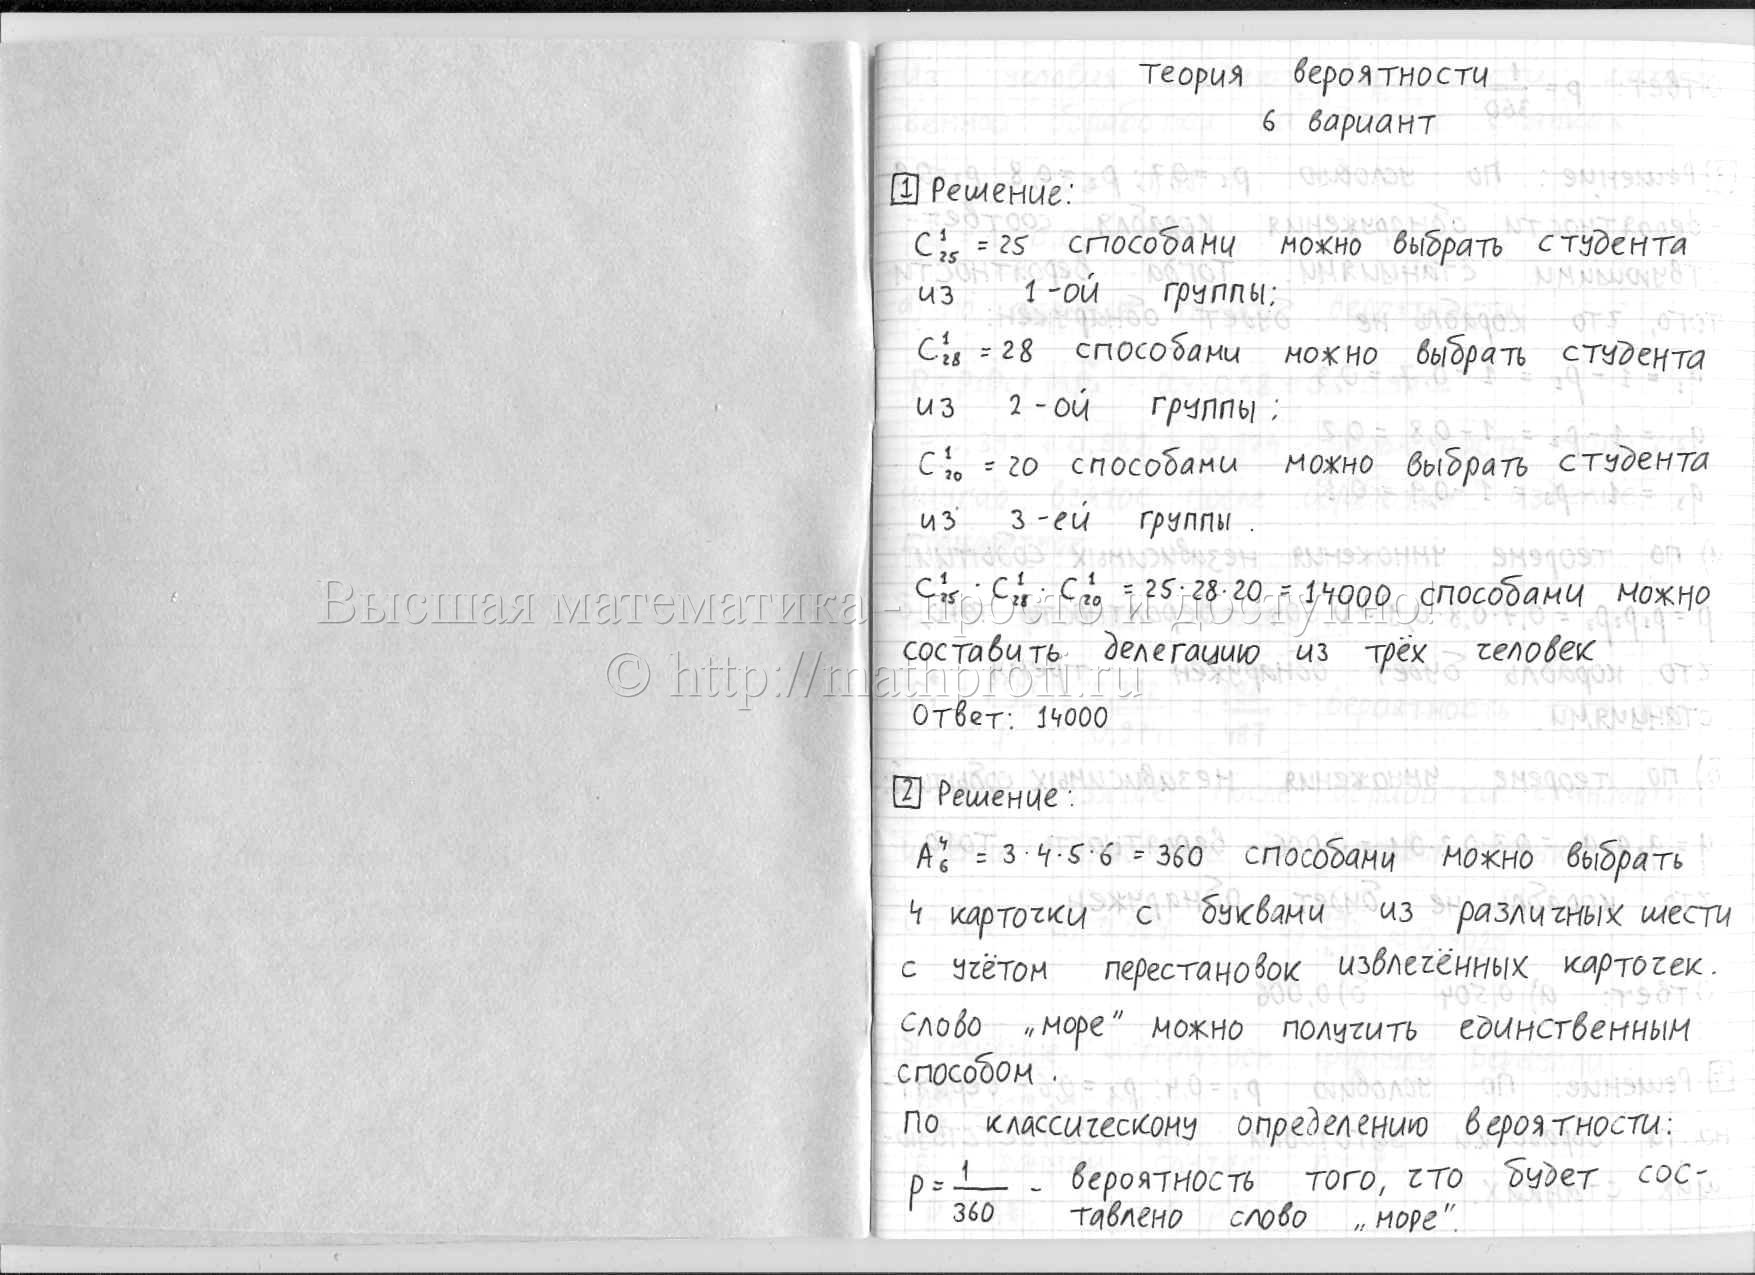 Теория вероятности
6 вариант
1 Решение:
C¹₂₅ = 25 способами можно выбрать студента
из 1-ой группы;
C¹₂₈ = 28 способами можно выбрать студента
из 2-ой группы;
C¹₂₀ = 20 способами можно выбрать студента
из 3-ей группы.
C¹₂₅ · C¹₂₈ · C¹₂₀ = 25·28·20 = 14000 способами можно
составить делегацию из трёх человек
Ответ: 14000
2 Решение:
A⁴₆ = 3·4·5·6 = 360 способами можно выбрать
4 карточки с буквами из различных шести
с учётом перестановок извлечённых карточек.
Слово „море” можно получить единственным
способом.
По классическому определению вероятности:
p = 1/360 - вероятность того, что будет сос-
тавлено слово „море”.
Высшая математика - просто и доступно!
© http://mathprofi.ru